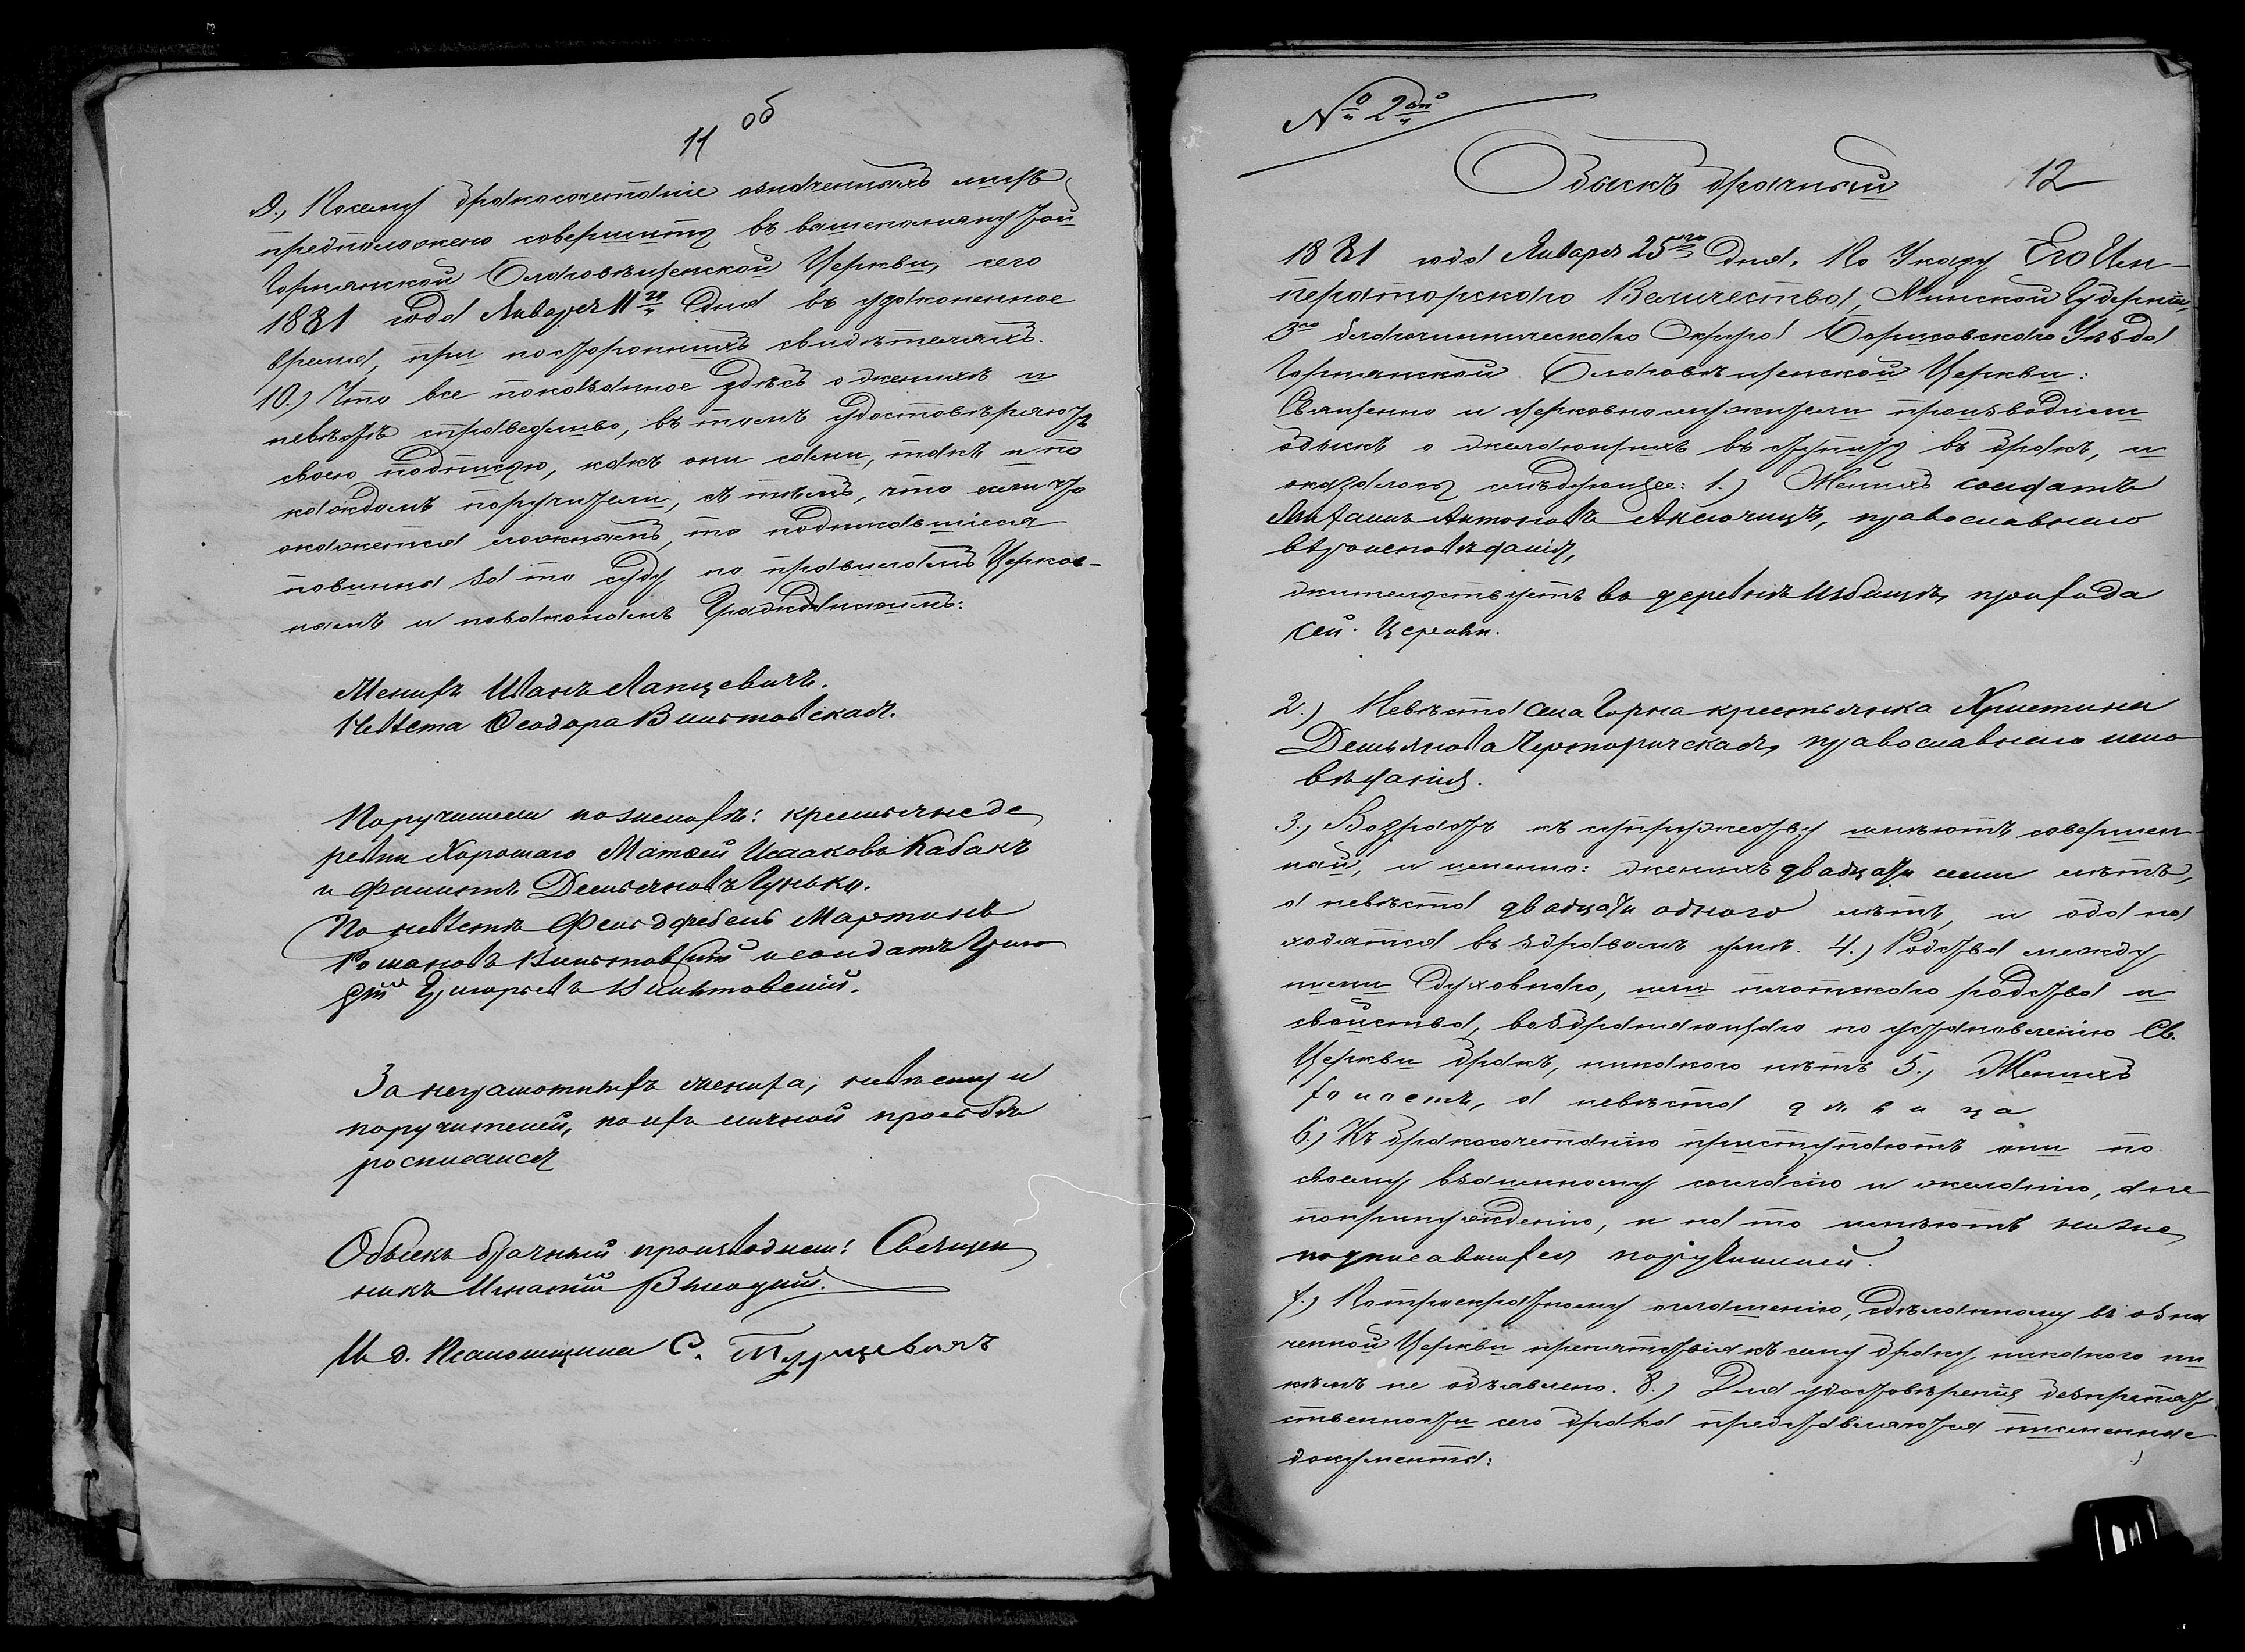 11 об
9., Посему бракосочетаніе означенныхъ лицъ
предположено совершить въ вышепомянутой
Горнянской Благовѣщенской Церкви, сего
1881 года Января 11го дня въ узаконенное
время, при постороннихъ свидѣтеляхъ.
10.) Что все показанное здѣсь о женихѣ и
невѣстѣ справедливо, въ томъ удостовѣряютъ
своею подписью, какъ они сами, такъ и по
каждомъ поручители, съ тѣмъ, что если что
окажется ложнымъ, то подписавшіеся
повинны за то суду по правиламъ Церков-
нымъ и по законамъ Гражданскимъ:
Женихъ Иванъ Лапцевичъ.
Невѣста Ѳеодора Вильтовская.
Поручители по женихѣ: крестьяне де
ревни Хорошаго Матѳей Исааковъ Кабакъ
и Филиппъ Демьяновъ Гунько.
По невѣстѣ Фельдфебель Мартинъ
Романовъ Вильтовскій и солдатъ
Григорьевъ Вильтовскій.
За неграмотныхъ жениха, невѣсту и
поручителей, по ихъ личной просьбѣ
росписался
Обыскъ брачный производилъ: Священ
никъ Игнатій
И. д. Псаломщика С. Турцевичъ
№ 2ой
Обыскъ брачный 12
1881 года Января 25го дня, По Указу Его Им-
ператорскаго Величества, Минской Губерніи,
3го благочинническаго Округа Борисовскаго Уѣзда
Горнянской Благовѣщенской Церкви:
Священно и церковнослужители производили
обыскъ о желающихъ вступить въ бракъ, и
оказалось слѣдующее: 1.) Женихъ солдатъ
Михаилъ Антоновъ Аксючицъ, православнаго
вѣроисповѣданія,
жительствуетъ въ деревнѣ Избищѣ, прихода
сей Церкви.
2.) Невѣста села Горна крестьянка Христина
Демьянова Черторичская, православнаго испо
вѣданія.
3., Возрастъ къ супружеству имѣютъ совершен-
ный, и именно: женихъ двадцати семи лѣтъ,
а невѣста двадцати одного лѣтъ, и оба на
ходятся въ здравомъ умѣ. 4.) Родства между
ними духовнаго, или плотскаго родства и
свойства, возбраняющаго по установленію Св.
Церкви бракъ, никакого нѣтъ 5., Женихъ
холостъ, а невѣста дѣвица
6.) Къ бракосочетанію приступаютъ они по
своему взаимному согласію и желанію, а не
по принужденію, и на то имѣютъ ниже
подписавшихся поручителей.
7.) По троекратному оглашенію, сдѣланному въ озна
ченной Церкви препятствія къ сему браку никакого ни
кѣмъ не объявлено. 8.) Для удостовѣренія безпрепят
ственности сего брака представляются письменные
документы: